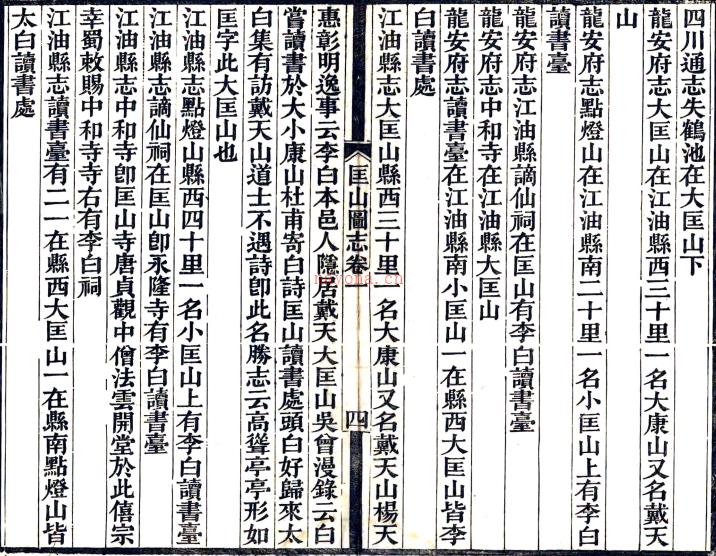 四川通志失鶴池在大匡山下
龍安府志大匡山在江油縣西三十里一名大康山又名戴天
山
龍安府志點燈山在江油縣南二十里一名小匡山上有李白
讀書臺
龍安府志江油縣謫仙祠在匡山有李白讀書臺
龍安府志中和寺在江油縣大匡山
龍安府志讀書臺在江油縣南小匡山一在縣西大匡山皆李
白讀書處
江油縣志大匡山縣西三十里一名大康山又名戴天山楊天
匡山圖志卷一 四
惠彰明逸事云李白本邑人隱居戴天大匡山吳曾漫錄云白
嘗讀書於大小康山杜甫寄白詩匡山讀書處頭白好歸來太
白集有訪戴天山道士不遇詩卽此名勝志云高聳亭亭形如
匡字此大匡山也
江油縣志點燈山縣西四十里一名小匡山上有李白讀書臺
江油縣志謫仙祠在匡山卽永隆寺有李白讀書臺
江油縣志中和寺卽匡山寺唐貞觀中僧法雲開堂於此僖宗
幸蜀敕賜中和寺寺右有李白祠
江油縣志讀書臺有二一在縣西大匡山一在縣南點燈山皆
太白讀書處